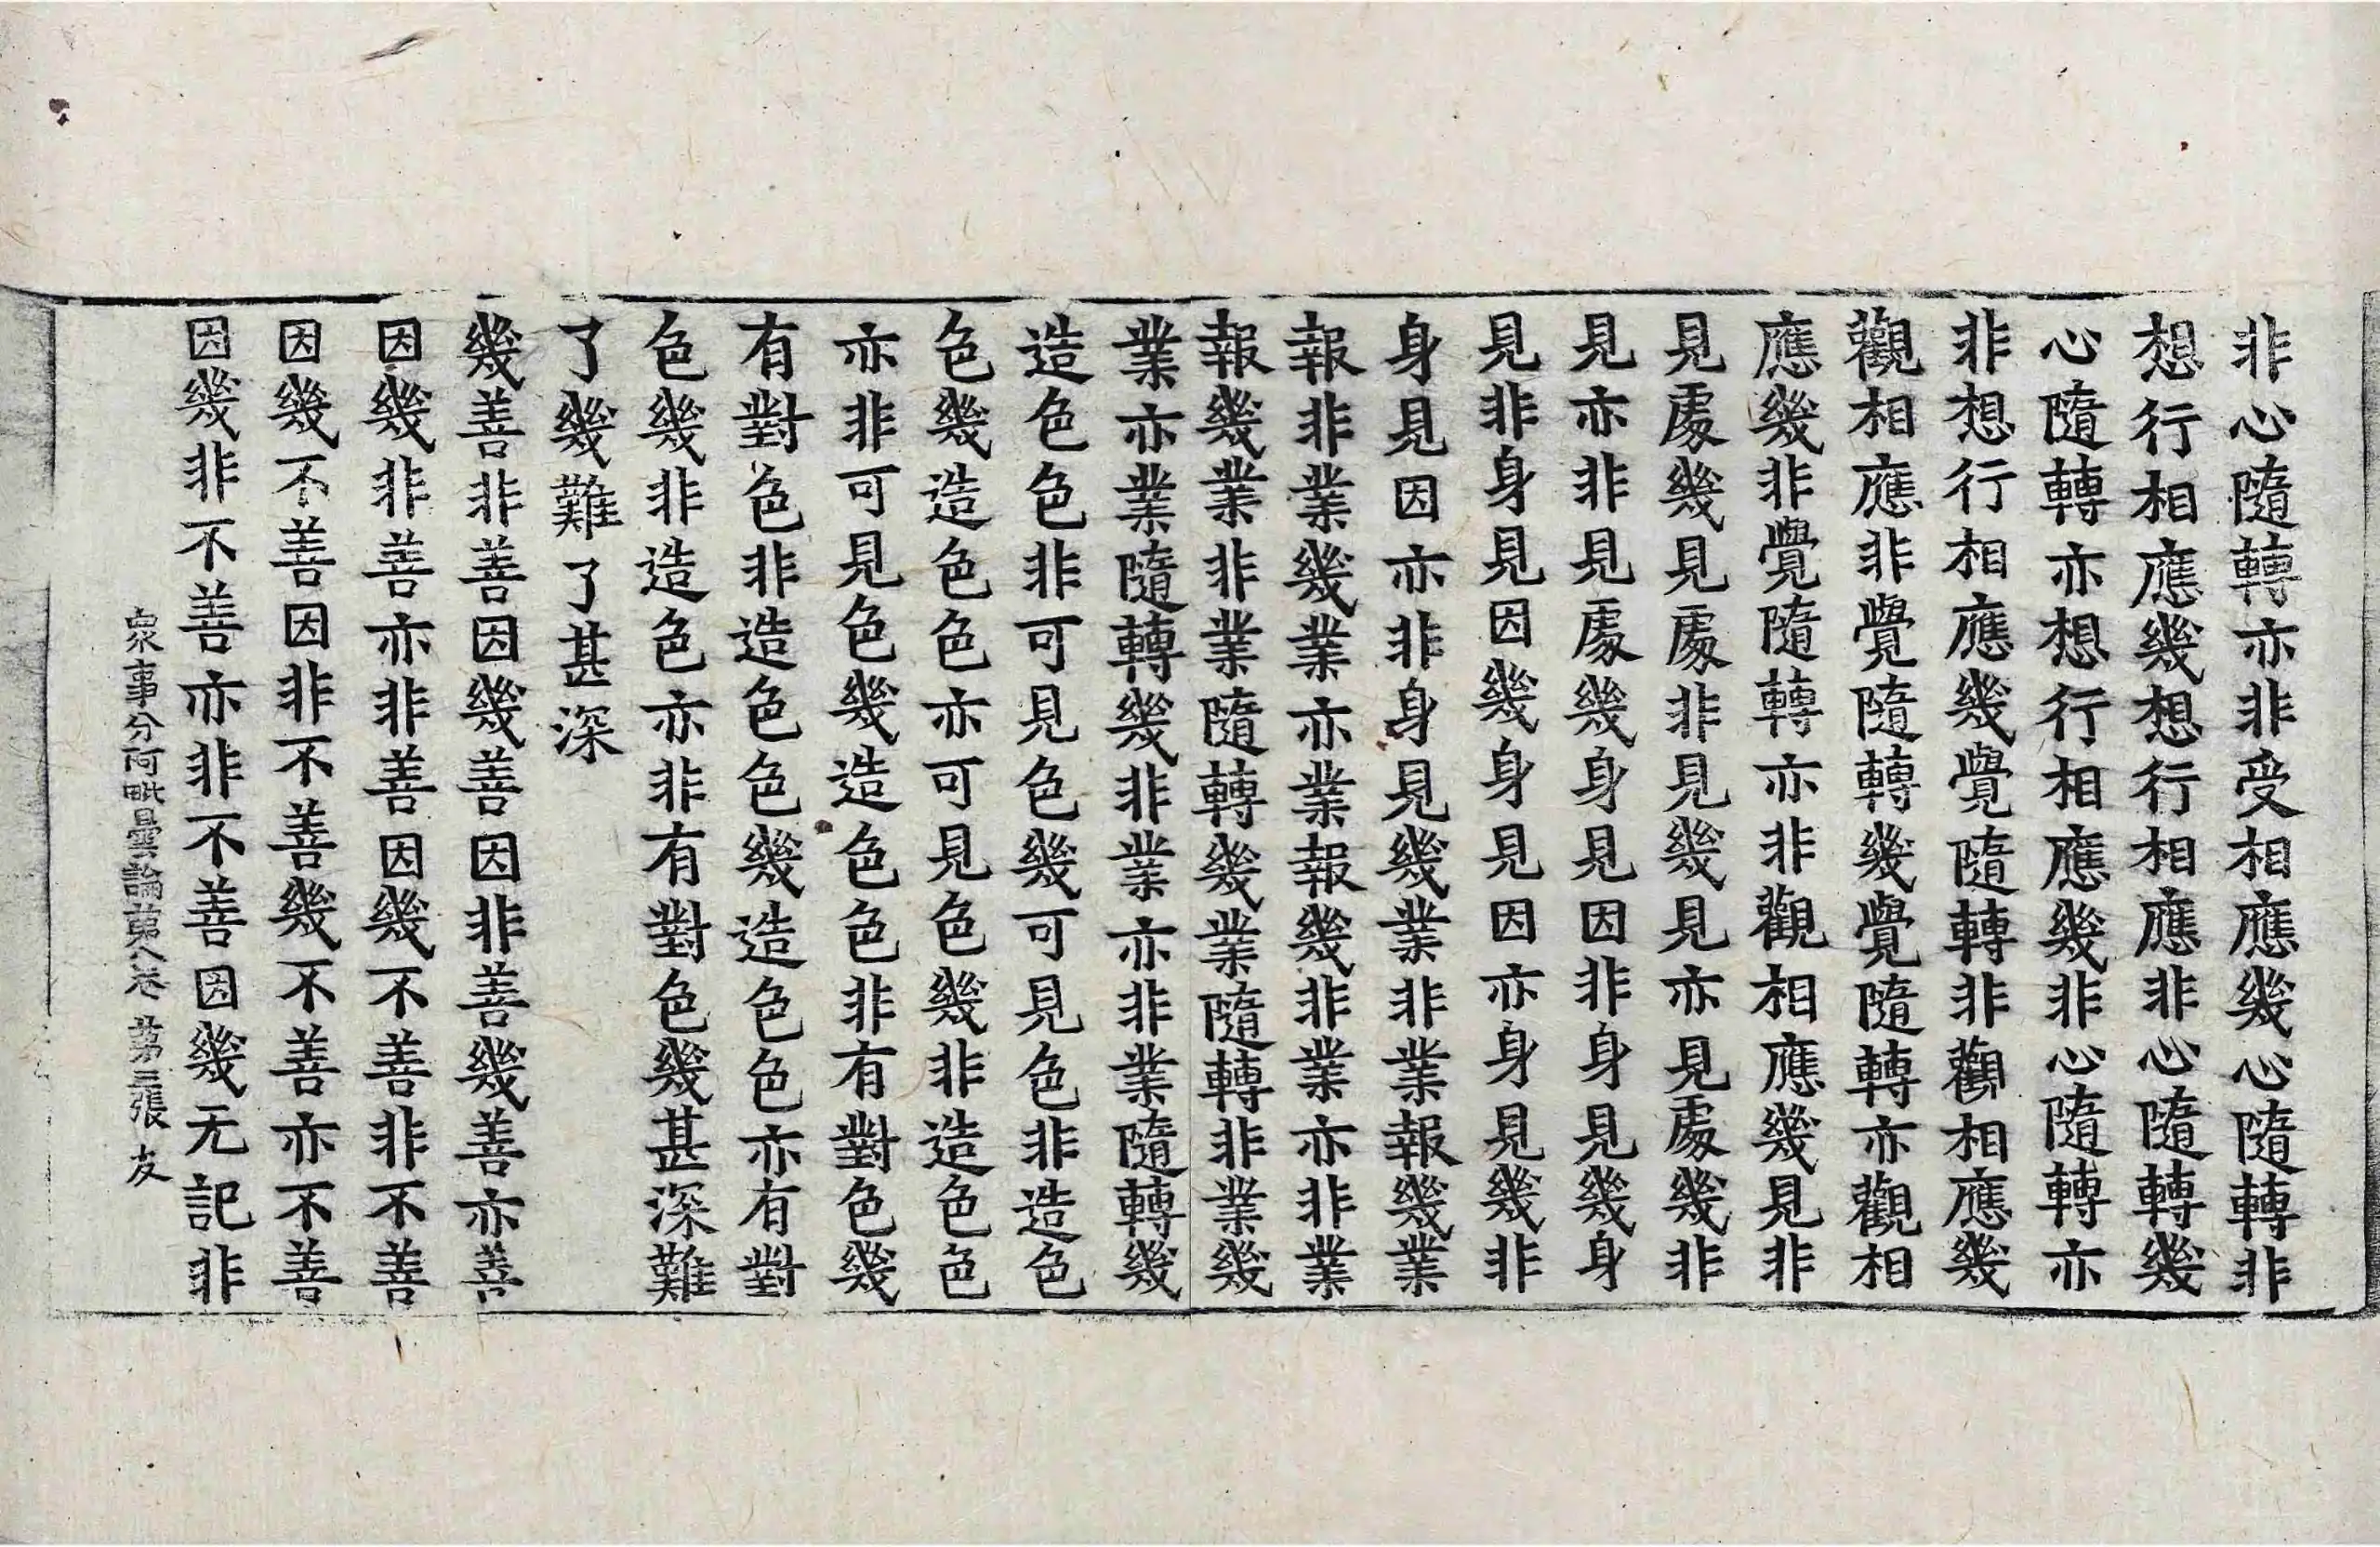 非心隨轉亦非受相應幾心隨轉非
想行相應幾想行相應非心隨轉幾
心隨轉亦想行相應幾非心隨轉亦
非想行相應幾覺隨轉非觀相應幾
觀相應非覺隨轉幾覺隨轉亦觀相
應幾非覺隨轉亦非觀相應幾見非
見處幾見處非見幾見亦見處幾非
見亦非見處幾身見因非身見幾身
見非身見因幾身見因亦身見幾非
身見因亦非身見幾業非業報幾業
報非業幾業亦業報幾非業亦非業
報幾業非業隨轉幾業隨轉非業幾
業亦業隨轉幾非業亦非業隨轉幾
造色色非可見色幾可見色非造色
色幾造色色亦可見色幾非造色色
亦非可見色幾造色色非有對色幾
有對色非造色色幾造色色亦有對
色幾非造色亦非有對色幾甚深難
了幾難了甚深
幾善非善因幾善因非善幾善亦善
因幾非善亦非善因幾不善非不善
因幾不善因非不善幾不善亦不善
因幾非不善亦非不善因幾无記非
衆事分阿毗曇論苐八卷 苐三張 友